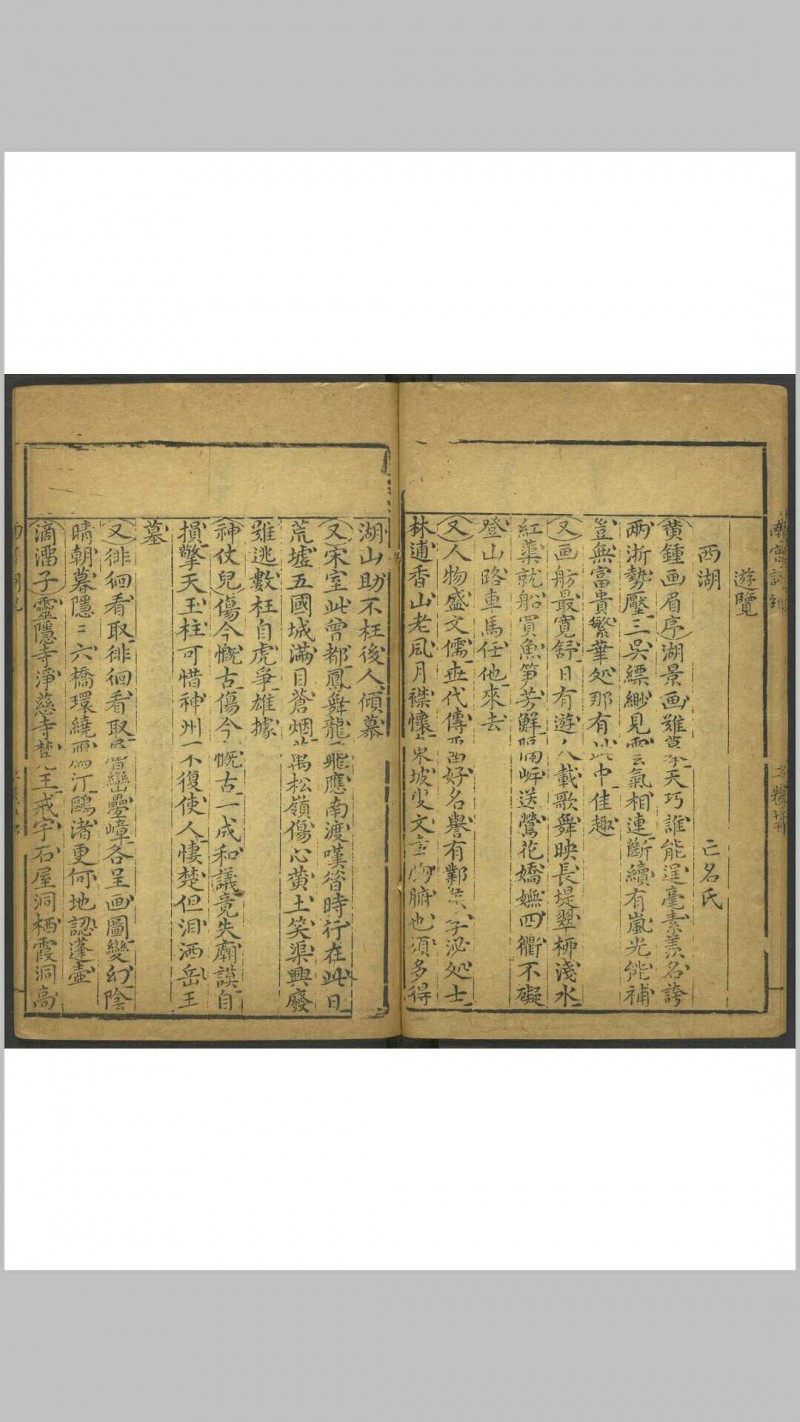 遊覽
西湖　亡名氏
黄鍾画眉序湖景画難
天巧誰能逞毫素羨名誇
两浙勢壓三吳縹緲見雲氣相連斷續有嵐光能補
豈無富貴繁華处那有此中佳趣
又画舫最寛舒日有遊人載歌舞映長堤翠栁淺水
紅蕖就船買魚笋芳鮮
岍送鶯花嬌嫵四衢不礙
登山路車馬任他來去
又人物盛文儒世代傳
好名譽有鄴
子泌处士
林逋香山老風月襟懷東坡叟文章
腑也須多得
湖山助不枉後人傾慕
又宋室此曾都鳳舞龍飛應南渡嘆當時行在此日
荒墟五國城滿目蒼烟
萬松嶺傷心黄土笑渠興廢
难逃數枉自虎爭雄據
神仗兒傷今慨古傷今慨古一成和議竟失廟謨自
損擎天玉柱可惜神州不復使人悽楚但泪洒岳王
墓
又徘徊看取徘徊看取
巒疊嶂各呈画圖變幻陰
晴朝暮隱〻六橋環繞
汀鷗渚更何地認蓬壺
滴溜子靈隱寺淨慈寺梵王戒宇石屋洞栖霞洞高